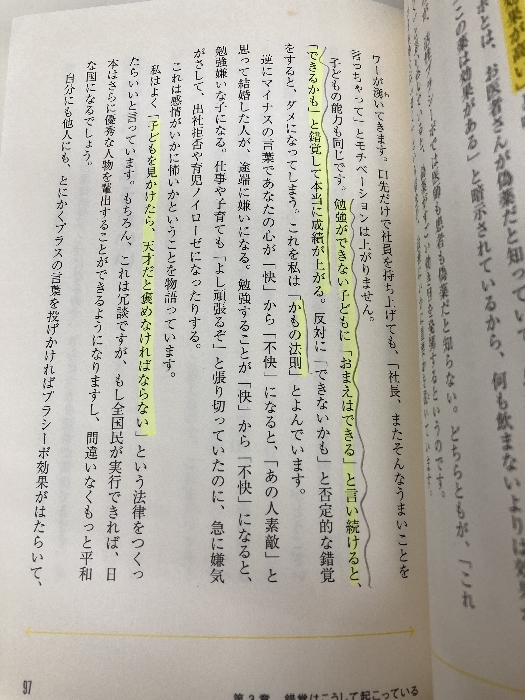 効果が高い
ボとは、お医者さんが偽薬だと知
「この薬は効果がある」と暗示されているから、何も飲まないよりは効果
だと知らない。どちらともが、「これ
ワーが湧いてきます。口先だけで社員を持ち上げても、「社長、またそんなうまいことを
言っちゃって」とモチベーションは上がりません。
子どもの能力も同じです。勉強ができない子どもに「おまえはできる」と言い続けると、
「できるかも」と錯覚して本当に成績が上がる。反対に「できないかも」と否定的な錯覚
をすると、ダメになってしまう。これを私は「かもの法則」とよんでいます。
逆にマイナスの言葉であなたの心が「快」から「不快」になると、「あの人素敵」と
思って結婚した人が、途端に嫌いになる。勉強することが「快」から「不快」になると、
勉強嫌いな子になる。仕事や子育ても「よし頑張るぞ」と張り切っていたのに、急に嫌気
がさして、出社拒否や育児ノイローゼになったりする。
これは感情がいかに怖いかということを物語っています。
私はよく「子どもを見かけたら、天才だと褒めなければならない」という法律をつくっ
たらいいと言っています。もちろん、これは冗談ですが、もし全国民が実行できれば、日
本はさらに優秀な人物を輩出することができるようになりますし、間違いなくもっと平和
な国になるでしょう。
自分にも他人にも、とにかくプラスの言葉を投げかければプラシーボ効果がはたらいて、
97
第3章 錯覚はこうして起こっている